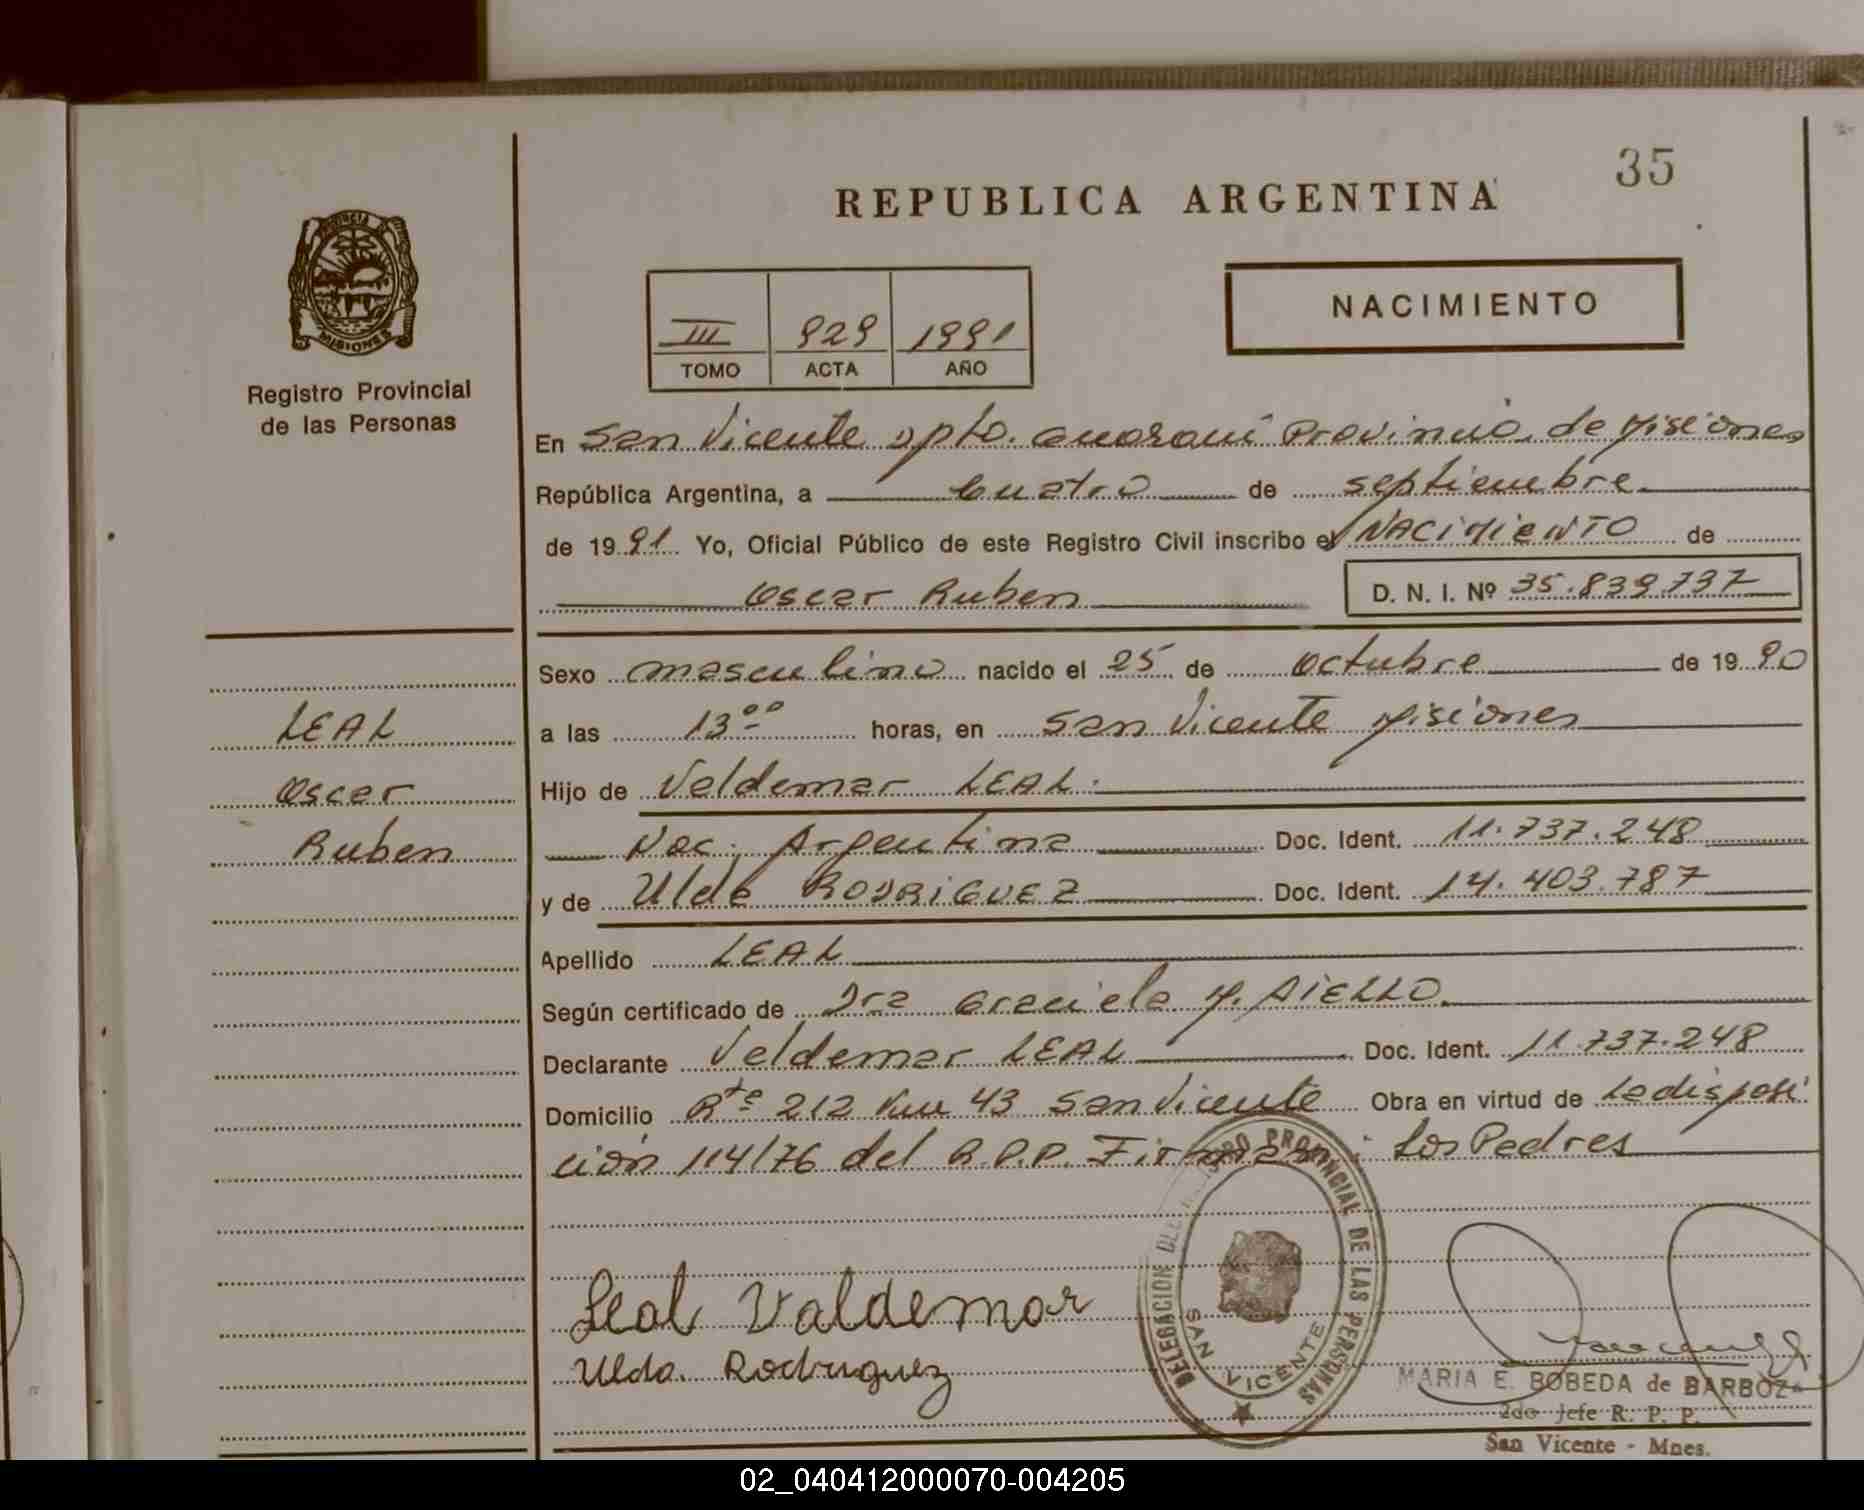 35
REPUBLICA ARGENTINA
PROVINCIA DE
MISIONES
Registro Provincial
de las Personas
III 929 1991
TOMO ACTA AÑO
NACIMIENTO
En San Vicente Dpto. Guaraní Provincia de Misiones
República Argentina, a Cuatro de septiembre
de 1991 Yo, Oficial Público de este Registro Civil inscribo el NACIMIENTO de
Oscar Ruben D. N. I. Nº 35.839.737
Sexo masculino nacido el 25 de octubre de 1990
a las 13⁰⁰ horas, en San Vicente Misiones
Hijo de Valdemar LEAL.
Nac. Argentina Doc. Ident. 11.737.248
y de Ulda RODRIGUEZ Doc. Ident. 14.403.787
Apellido LEAL
Según certificado de Dra Graciela M. AIELLO
Declarante Valdemar LEAL Doc. Ident. 11.737.248
Domicilio Rta 212 43 San Vicente Obra en virtud de La disposi
ción 114/76 del R.P.P. Firmaran: Los Padres
LEAL
Oscar
Ruben
Leal Valdemar
Ulda. Rodriguez
DELEGACION DEL REGISTRO PROVINCIAL DE LAS PERSONAS
SAN VICENTE
MARIA E. BOBEDA de BARBOZA
2do Jefe R. P. P.
San Vicente - Mnes.
02_040412000070-004205